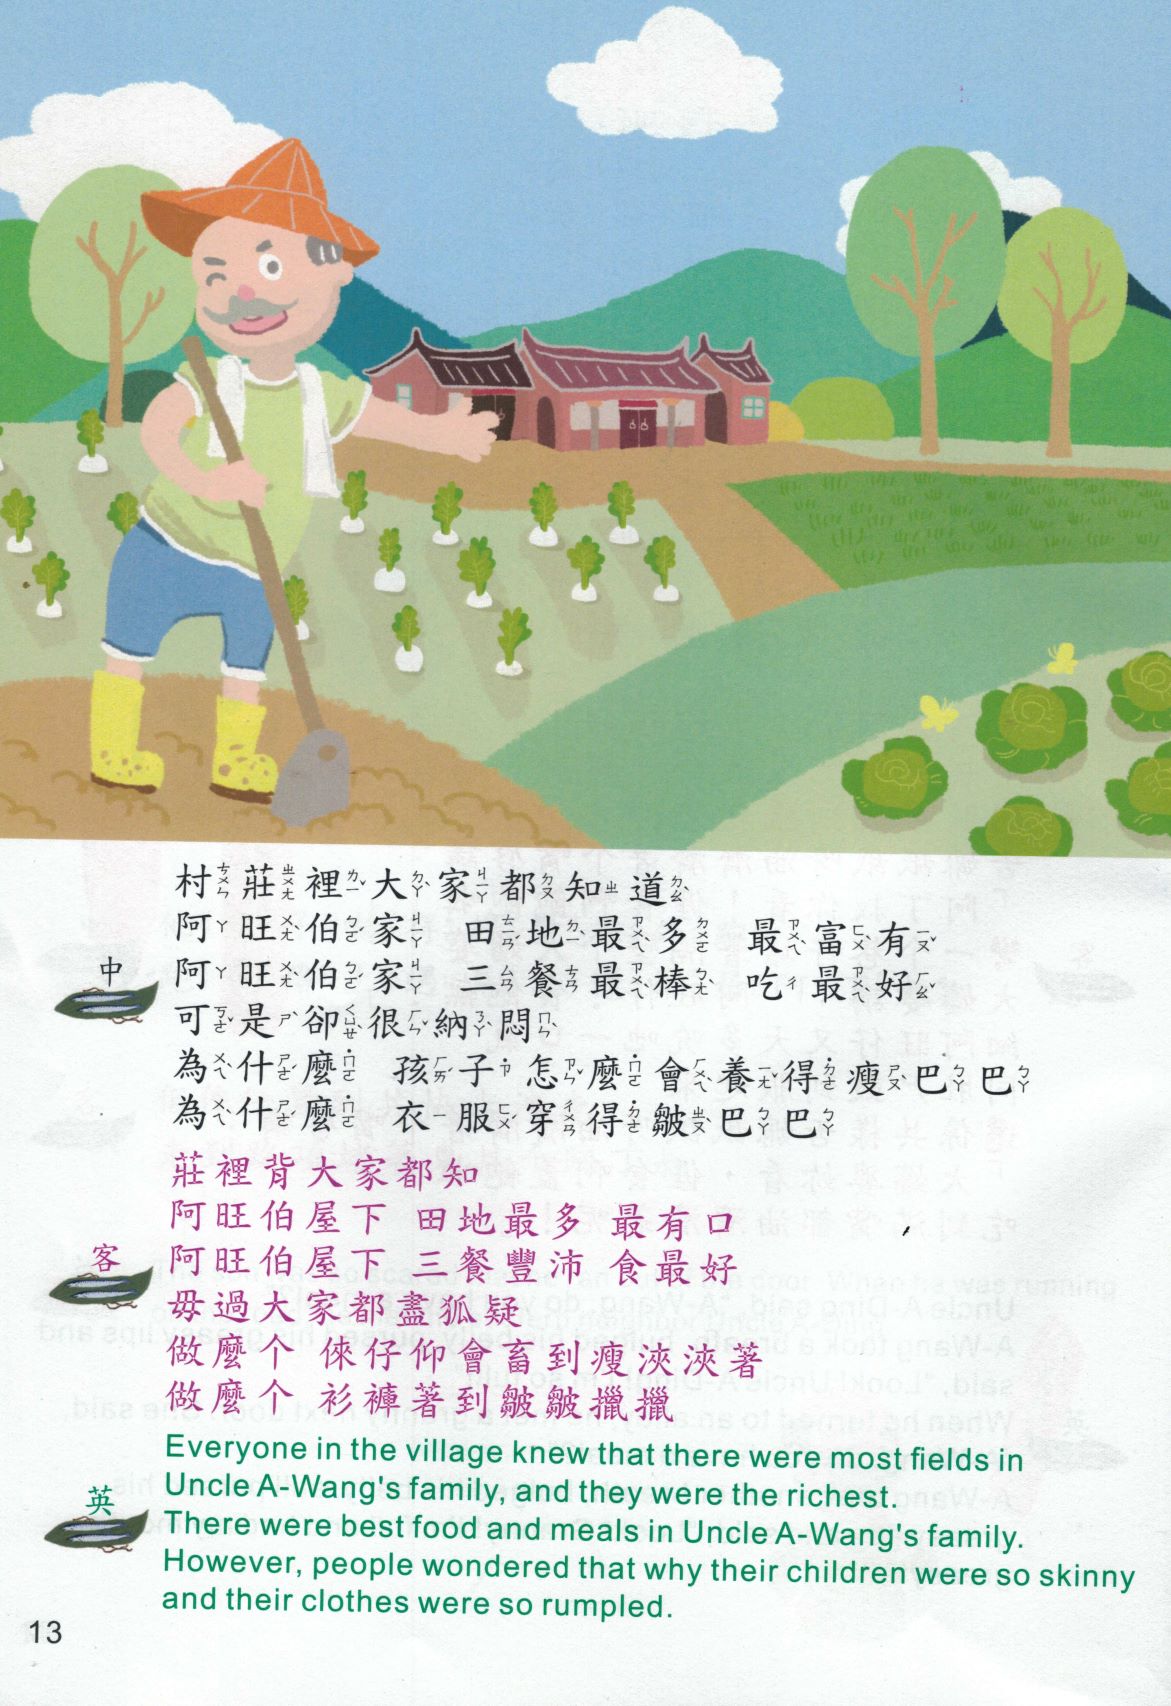 村莊裡大家都知道
阿旺伯家 田地最多 最富有
阿旺伯家 三餐最棒 吃最好
可是卻很納悶
為什麼 孩子怎麼會養得瘦巴巴
為什麼 衣服穿得皺巴巴
中
莊裡背大家都知
阿旺伯屋下 田地最多 最有口
阿旺伯屋下 三餐豐沛 食最好
毋過大家都盡狐疑
做麼个 倈仔仰會畜到瘦浹浹著
做麼个 衫褲著到皺皺擸擸
客
Everyone in the village knew that there were most fields in
Uncle A-Wang's family, and they were the richest.
There were best food and meals in Uncle A-Wang's family.
However, people wondered that why their children were so skinny
and their clothes were so rumpled.
英
13